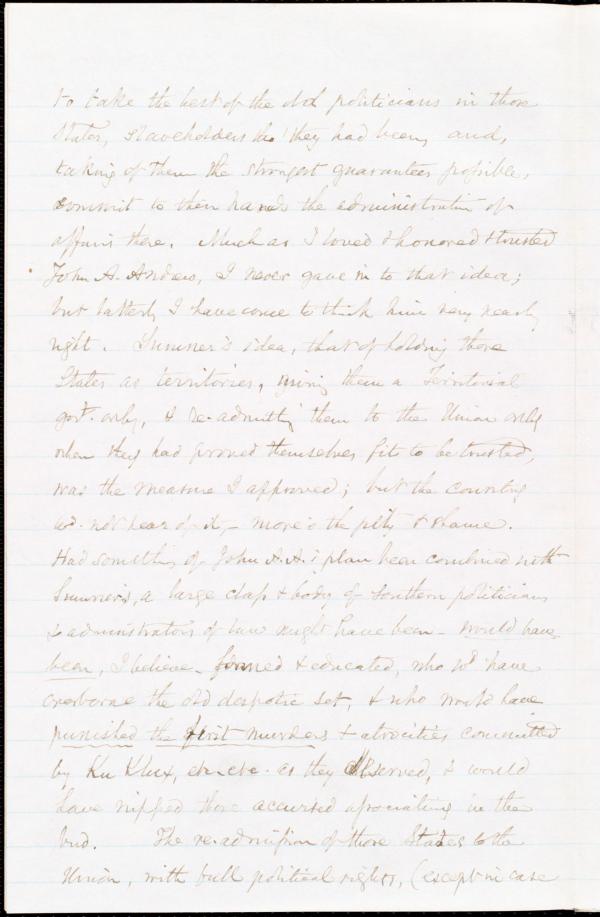 to take the best of the old politicians in those
States, slaveholders tho' they had been, and,
taking of them the strongest guarantees possible,
commit to their hands the administration of
affairs there. Much as I loved & honored & trusted
John A. Andrew, I never gave in to that idea;
but latterly I have come to think him very nearly
right. Sumner's idea, that of holding those
States as territories, giving them a Territorial
govt. only, & re-admitting them to the Union only
when they had proved themselves fit to be trusted,
was the measure I approved; but the country
wd. not hear of it, - more's the pity & shame.
Had something of John A. A.'s plan been combined with
Sumner's, a large class & body of Southern politicians
& administrators of law might have been - would have
been, I believe - formed & educated, who wd have
overborne the old despotic set, & who would have
punished the first murders & atrocities committed
by Ku Klux, etc. etc. as they deserved, & would
have nipped those accursed associations in the
bud. The re-admission of those States to the
Union, with full political rights, (except in case